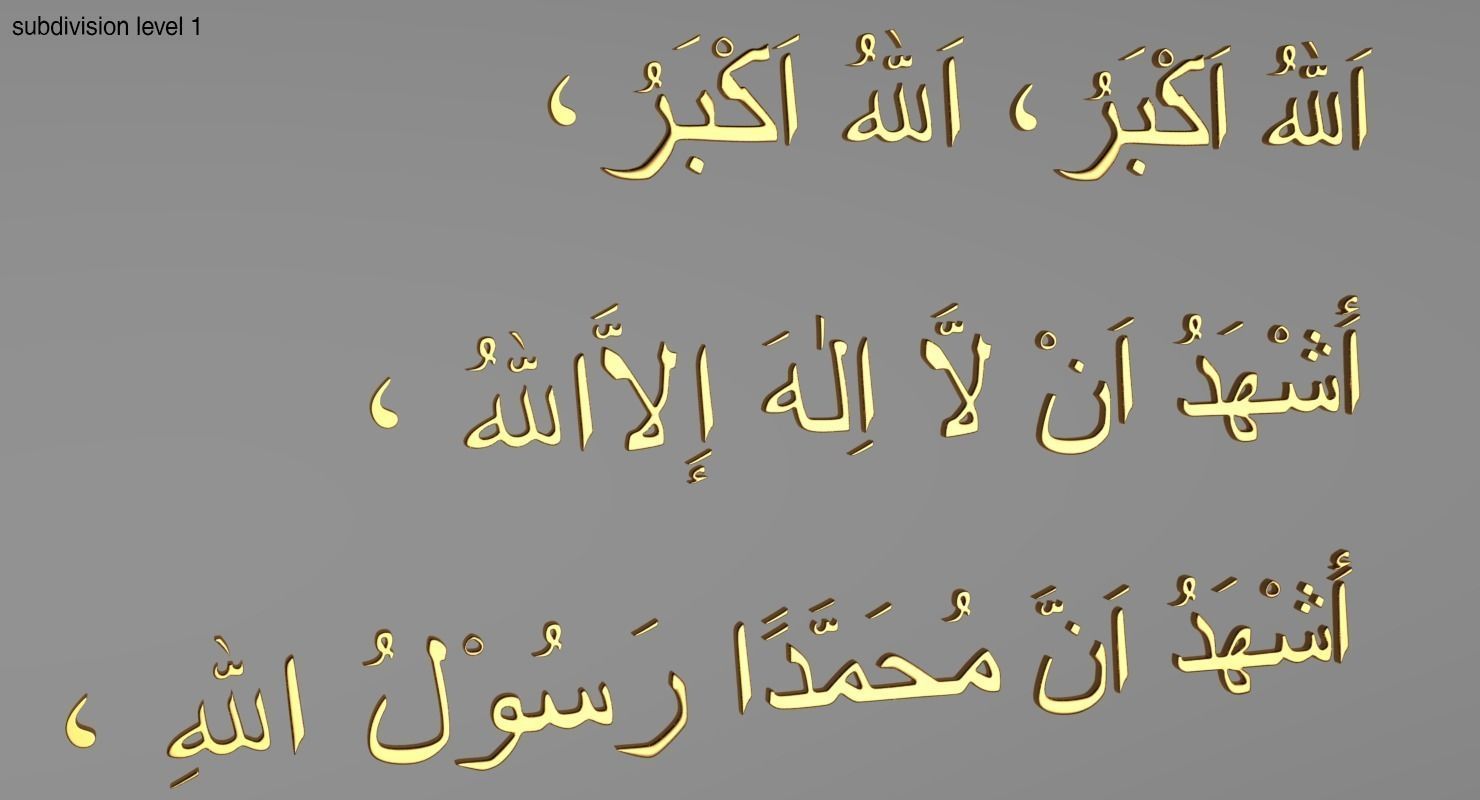 subdivision level 1
اَللّٰهُ اَكْبَرُ ، اَللّٰهُ اَكْبَرُ ،
أَشْهَدُ اَنْ لَّا اِلٰهَ إِلَّااللّٰهُ ،
أَشْهَدُ اَنَّ مُحَمَّدًا رَسُوْلُ اللّٰهِ ،